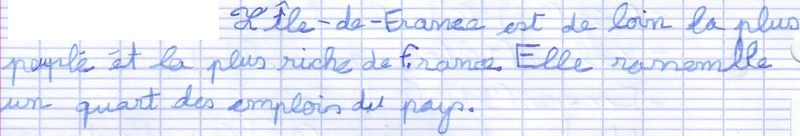 L'Île-de-France est de loin la plus
peuplé et la plus riche de France. Elle rassemble
un quart des emplois du pays.